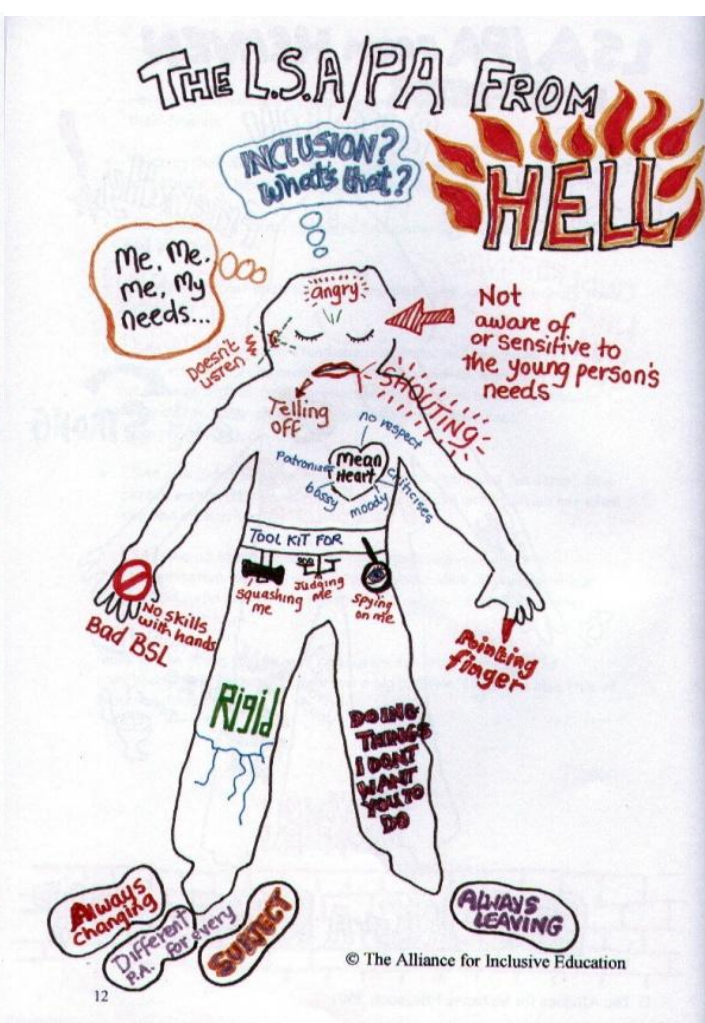 THE L.S.A/PA FROM
HELL
INCLUSION?
What's that?
Me, Me,
me, My
needs...
angry
Doesn't
listen
Not
aware of
or sensitive to
the young person's
needs
Telling
off
SHOUTING
no respect
Patronise
Mean
Heart
criticises
bossy
moody
TOOL KIT FOR
squashing
me
Judging
me
Spying
on me
No skills
with hands
Bad BSL
Pointing
finger
Rigid
DOING
THINGS
I DONT
WANT
YOU TO
DO
Always
changing
Different
P.A. for every
SUBJECT
ALWAYS
LEAVING
© The Alliance for Inclusive Education
12